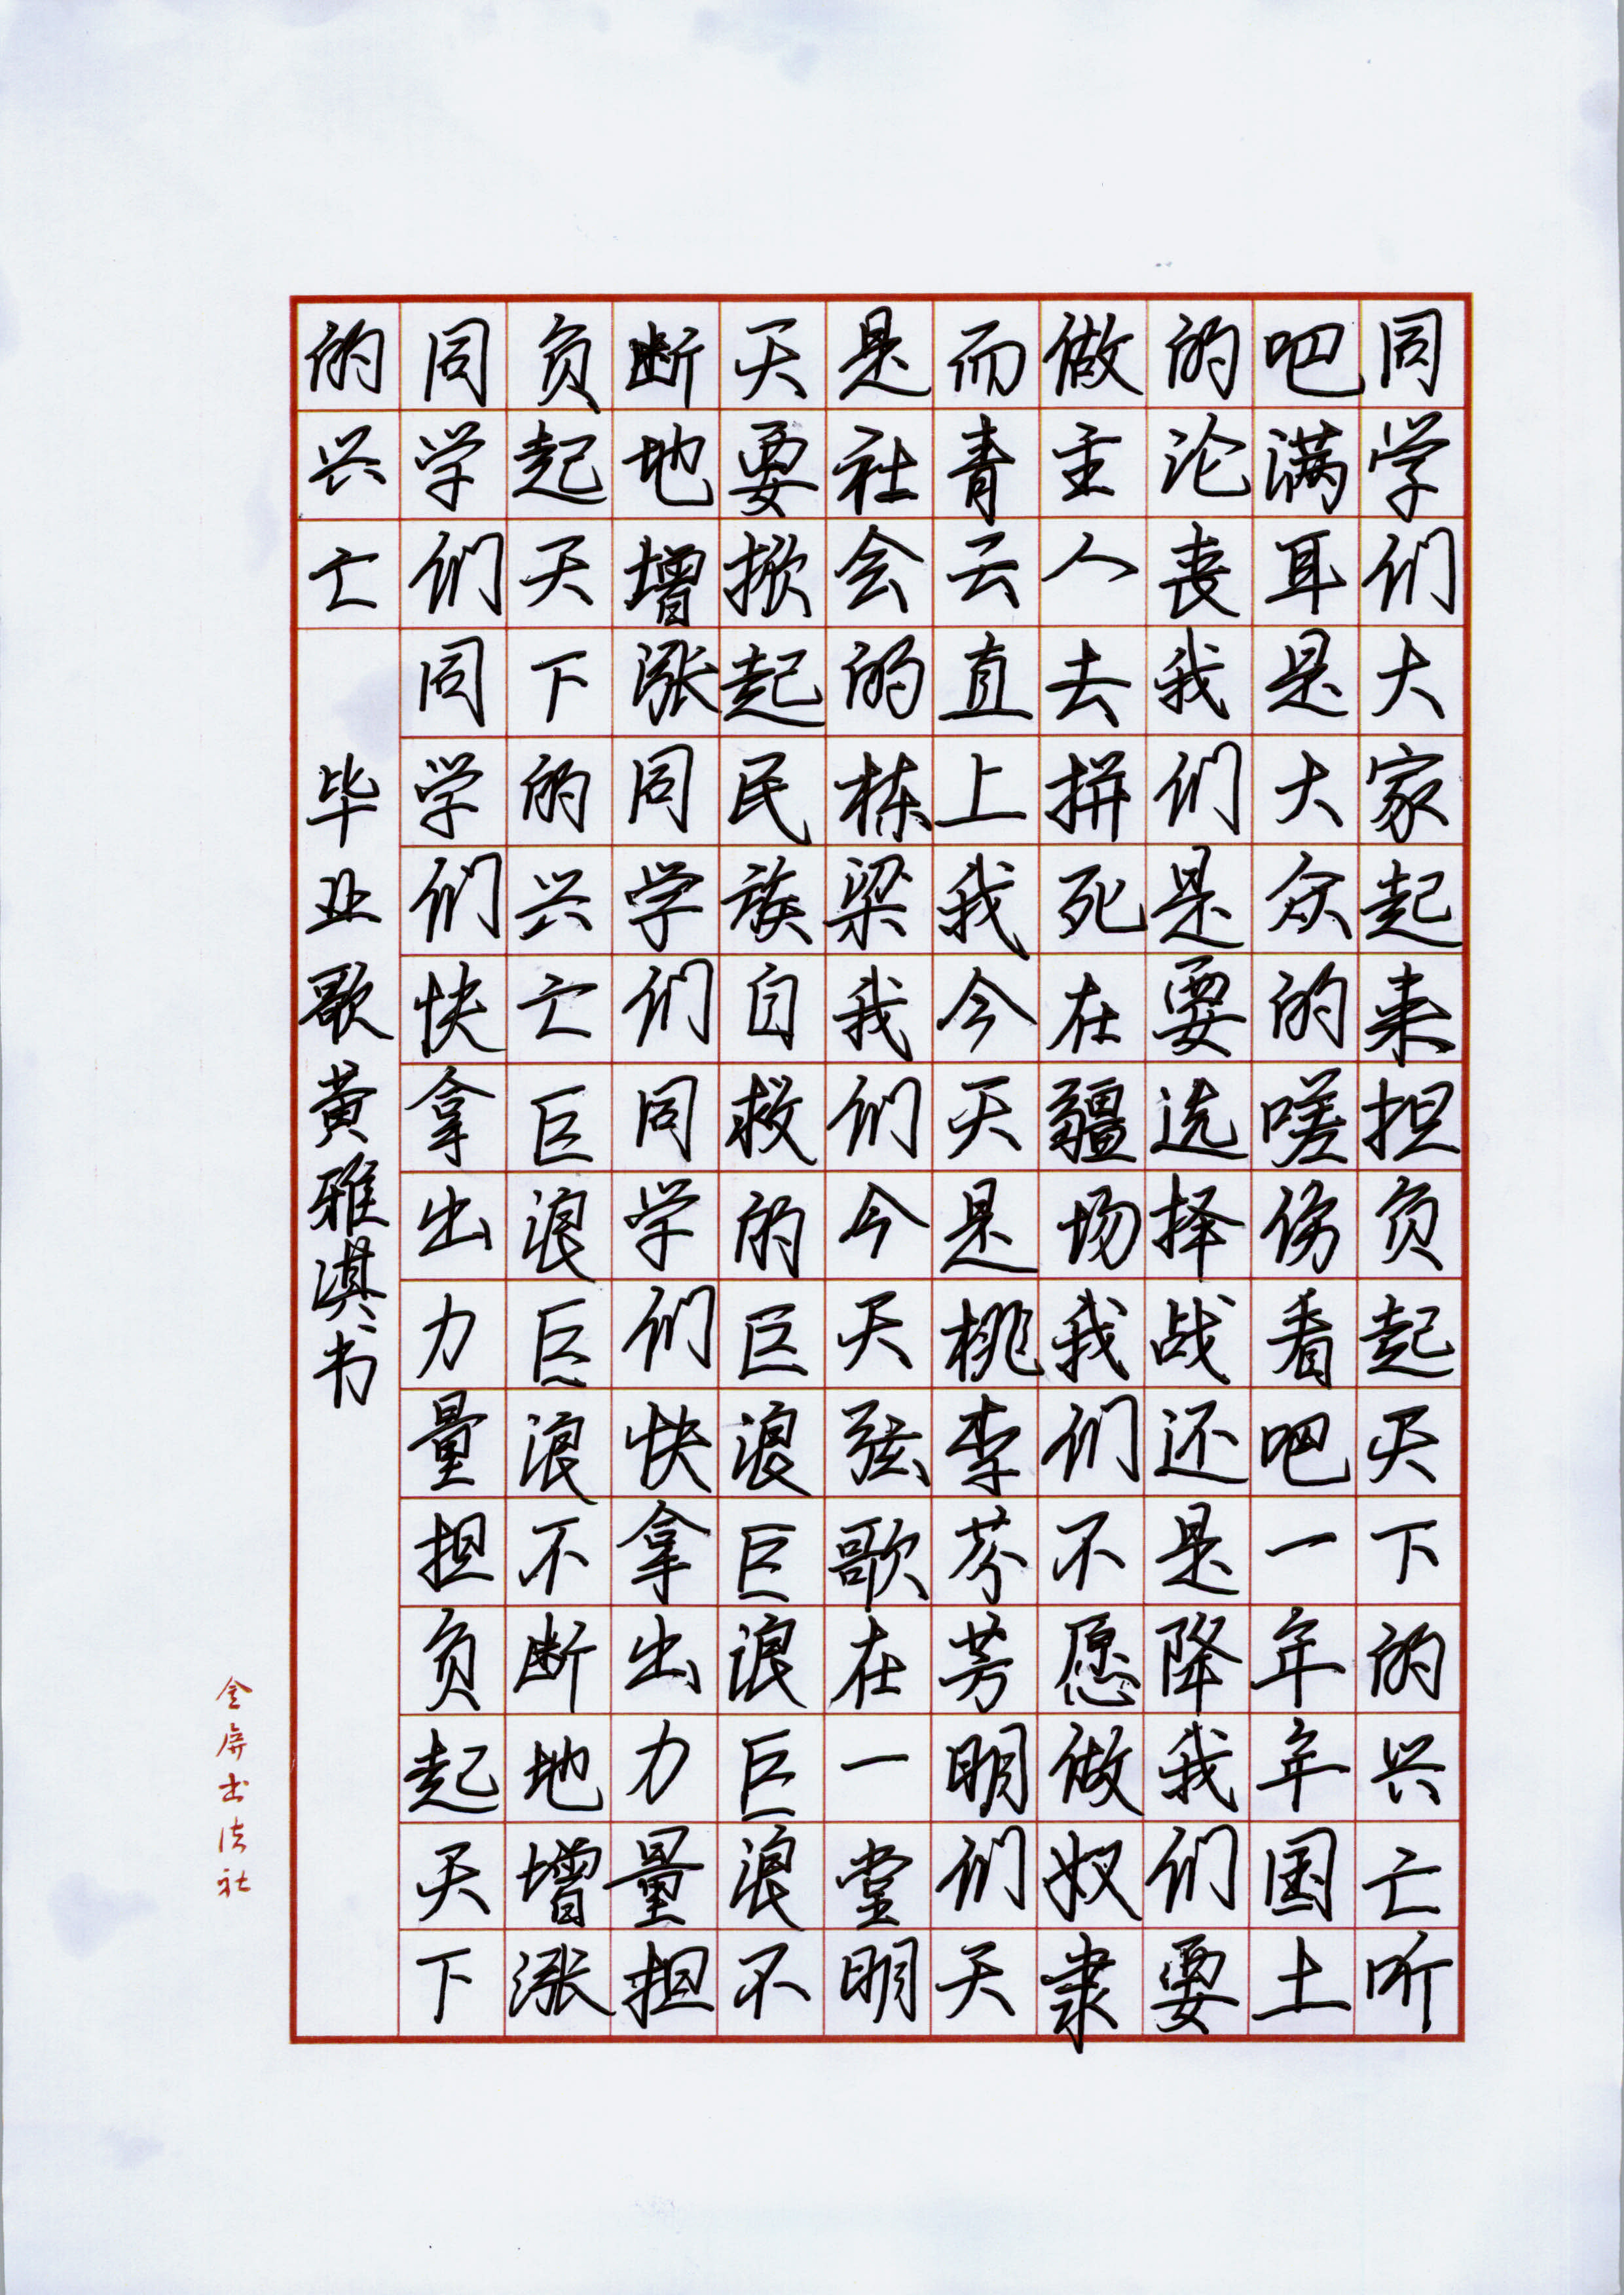 同学们大家起来担负起天下的兴亡听
吧满耳是大众的嗟伤看吧一年年国土
的沦丧我们是要选择战还是降我们要
做主人去拼死在疆场我们不愿做奴隶
而青云直上我今天是桃李芬芳明们天
是社会的栋梁我我们今天弦歌在一堂明
天要掀起民族自救的巨浪巨浪巨浪不
断地增涨同学们同学们快拿出力量担
负起天下的兴亡巨浪巨浪不断地增涨
同学们同学们快拿出力量担负起天下
的兴亡
毕业歌黄雅淇书
金屏出法社